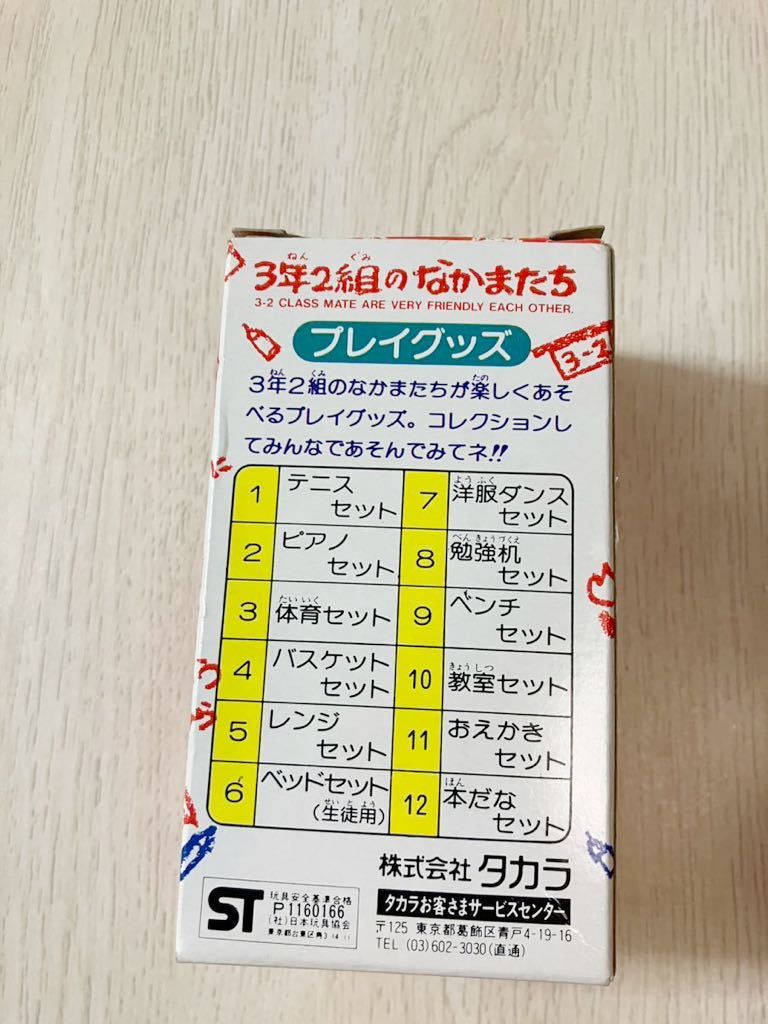 3年2組のなかまたち
ねん ぐみ
3-2 CLASS MATE ARE VERY FRIENDLY EACH OTHER.
プレイグッズ
3-2
3年2組のなかまたちが楽しくあそ
ねん くみ たの
べるプレイグッズ。コレクションし
てみんなであそんでみてネ!!
1 テニスセット
2 ピアノセット
3 体育セット
たいいく
4 バスケットセット
5 レンジセット
6 ベッドセット
(生徒用)
せいとよう
7 洋服ダンスセット
ようふく
8 勉強机セット
べんきょうづくえ
9 ベンチセット
10 教室セット
きょうしつ
11 おえかきセット
12 本だなセット
ほん
株式会社 タカラ
タカラお客さまサービスセンター
〒125 東京都葛飾区青戸4-19-16
TEL (03)602-3030(直通)
ST
玩具安全基準合格
P1160166
(社)日本玩具協会